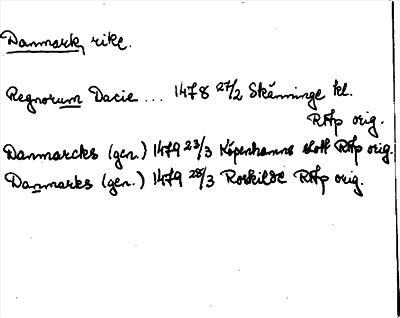 Danmark, rike.
Regnorum Dacie ... 1478 27/2 Skänninge kl.
RAp orig.
Danmarcks (gen.) 1479 23/3 Köpenhamns slott RAp orig.
Danmarks (gen.) 1479 28/3 Roskilde RAp orig.